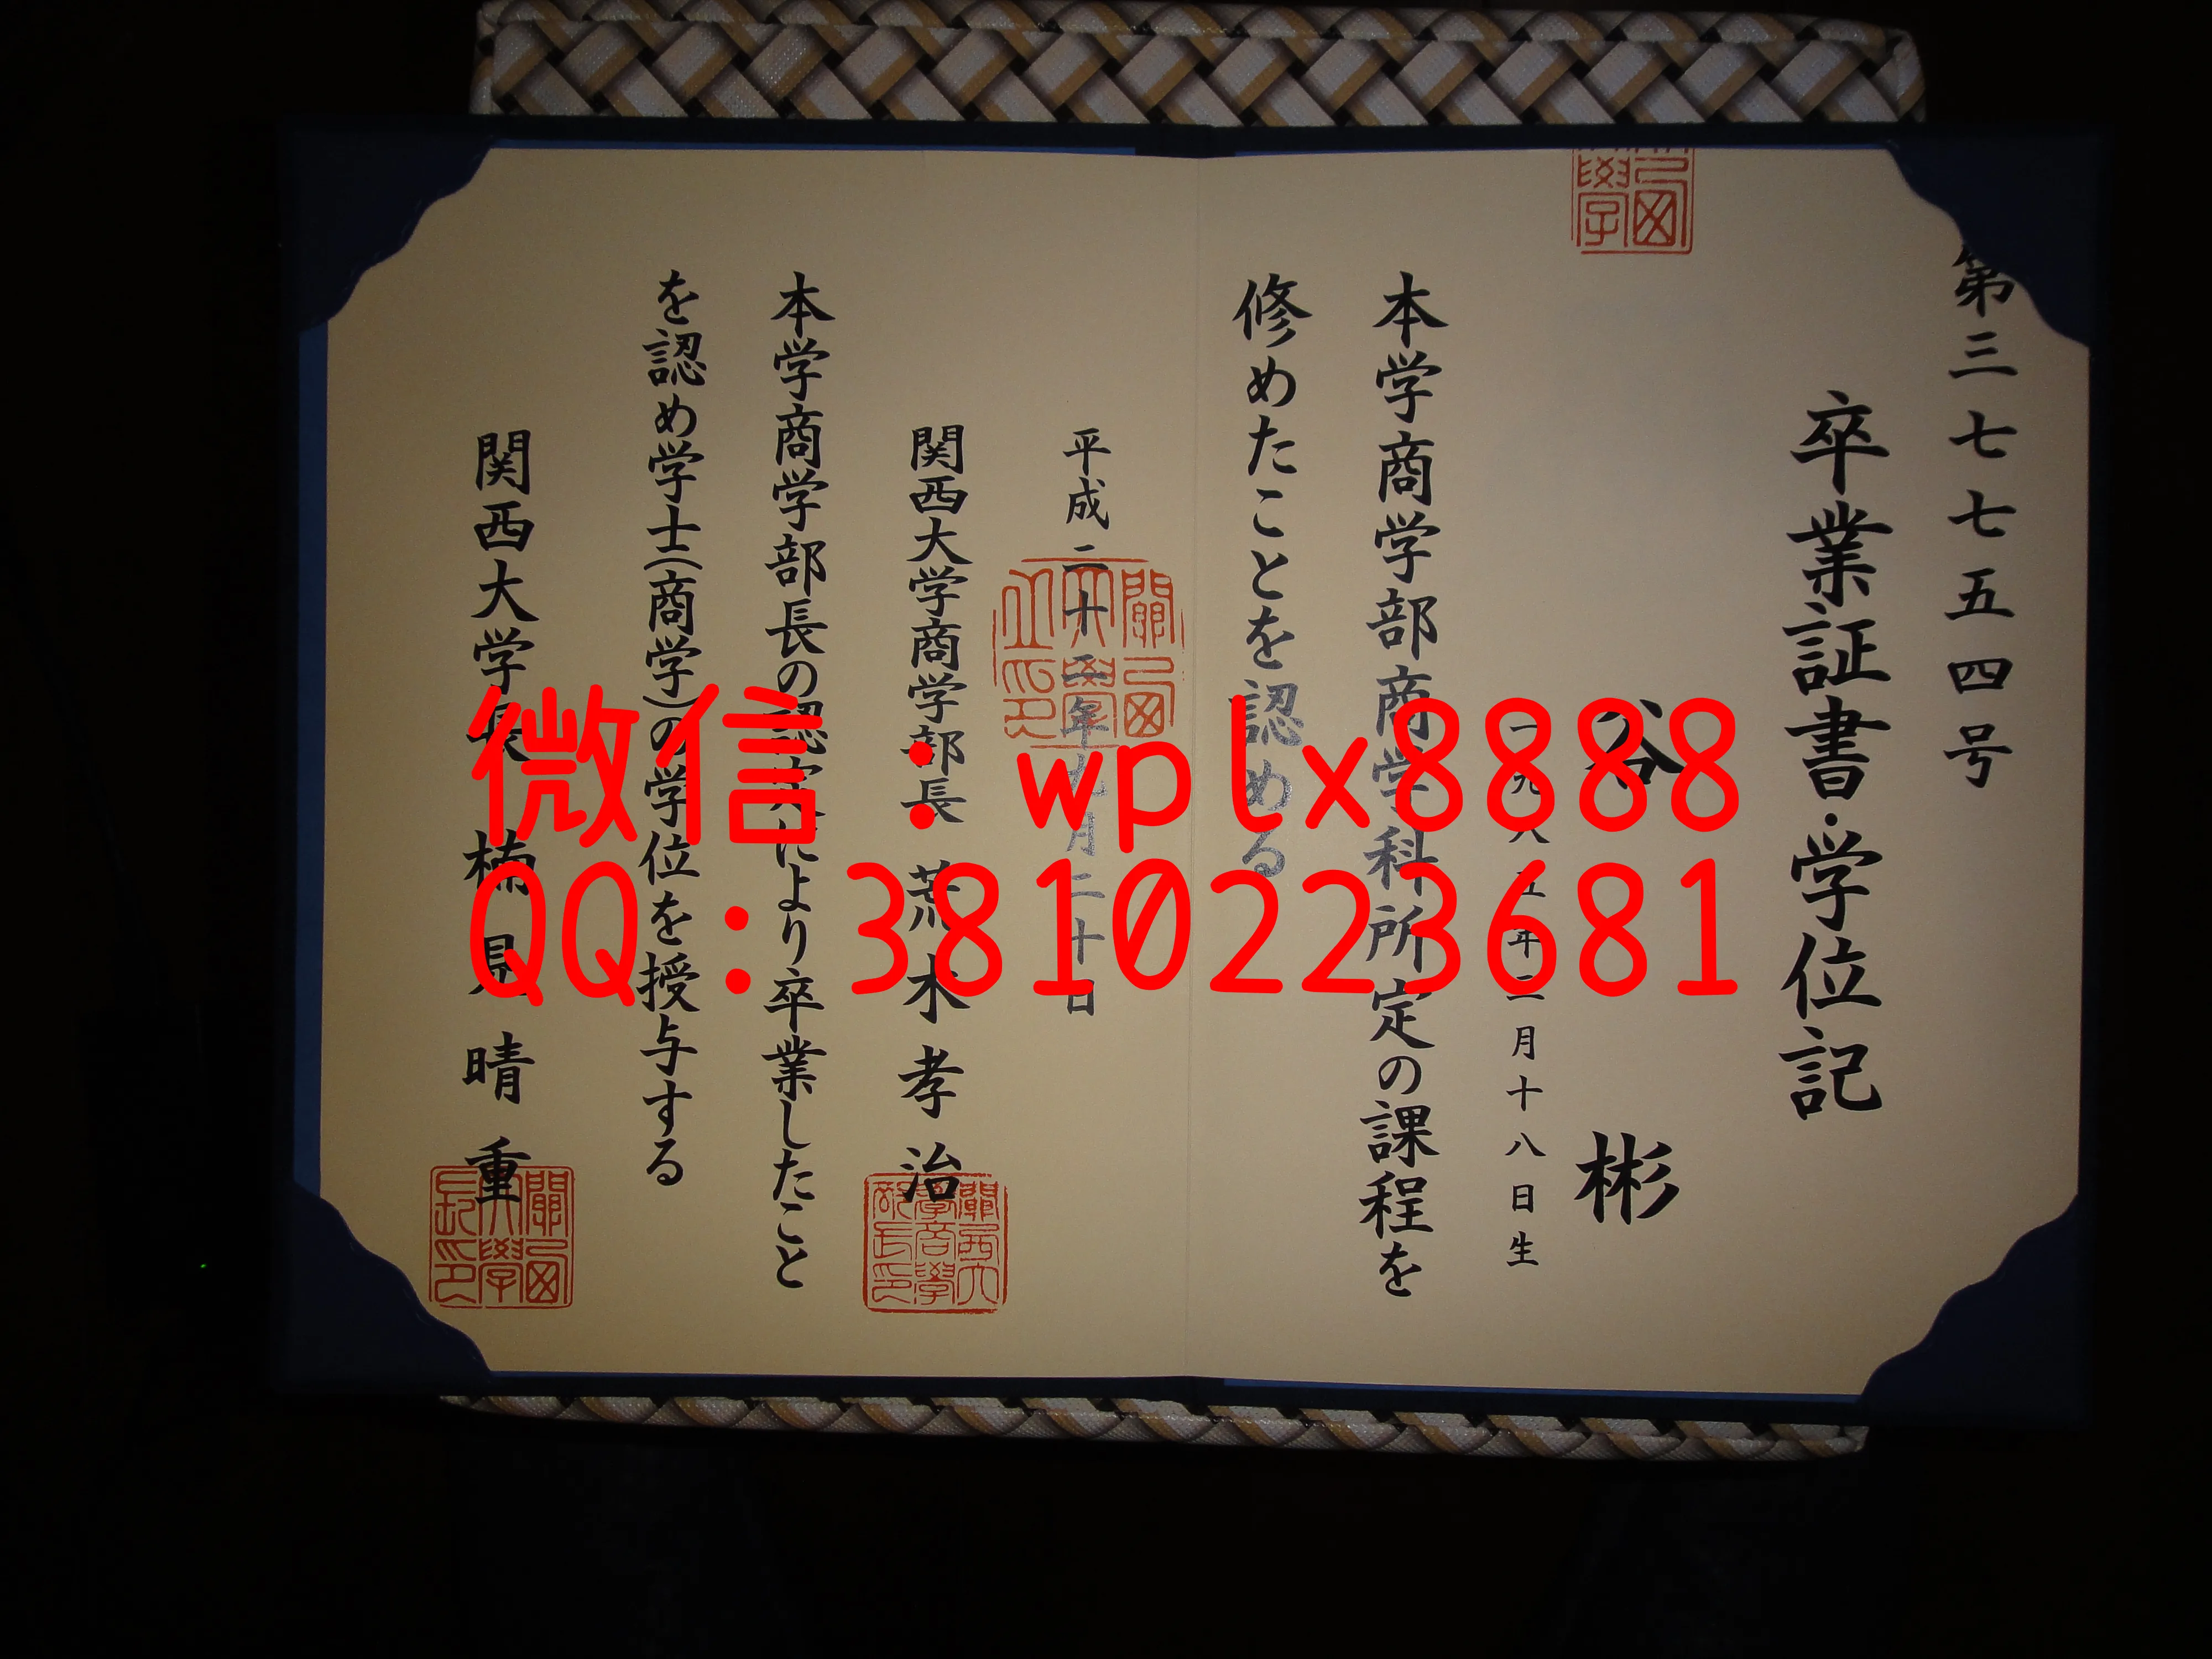 第三七七五四号
卒業証書・学位記
谷 彬
一九八五年二月十八日生
本学商学部商学科所定の課程を
修めたことを認める
平成二十 年九月二十日
関西大学商学部長 荒木孝治
本学商学部長の認定により卒業したこと
を認め学士(商学)の学位を授与する
関西大学長 楠見晴重
微信：wplx8888
QQ：3810223681